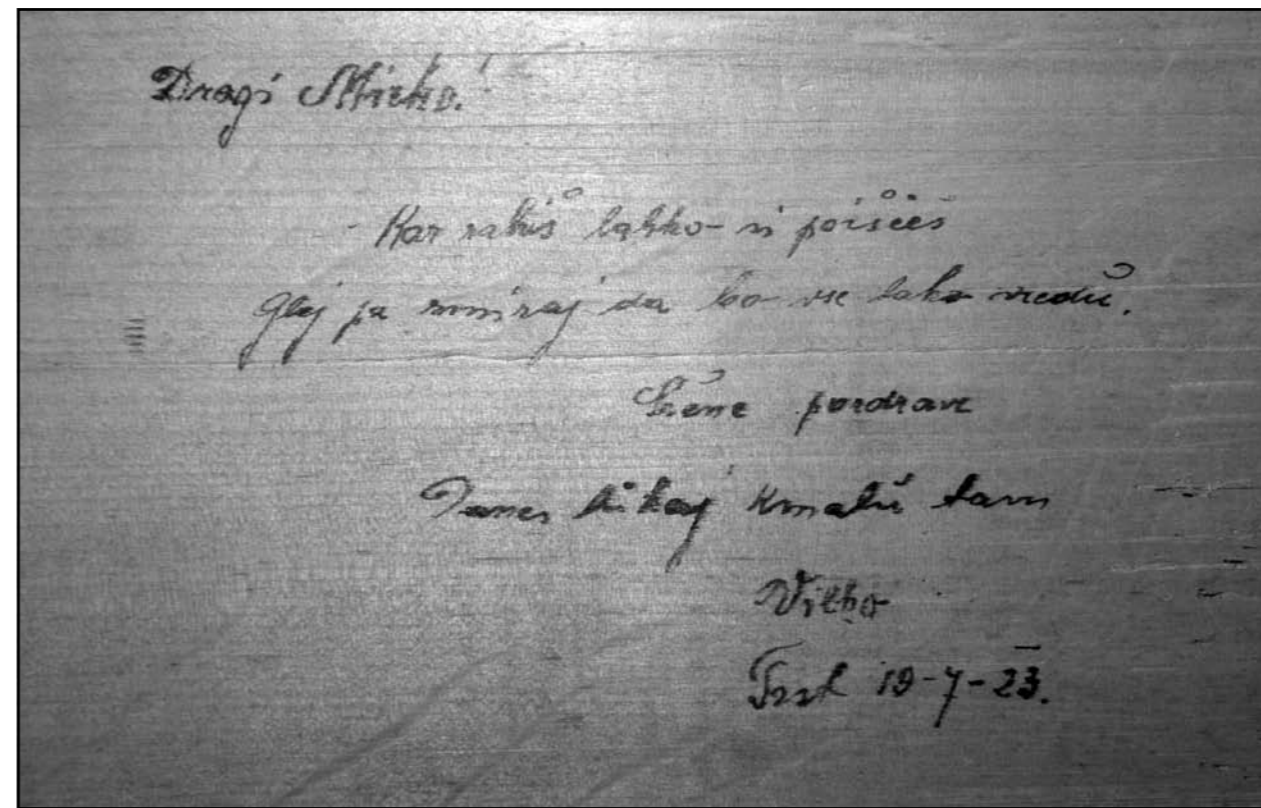 Dragi Mirko!
Kar rabiš lahko si poiščeš
Glej pa zmiraj da bo vse tako vredu.
Srčne pozdrave
Danes tukaj kmalu tam
Vilko
Trst 19-7-23.